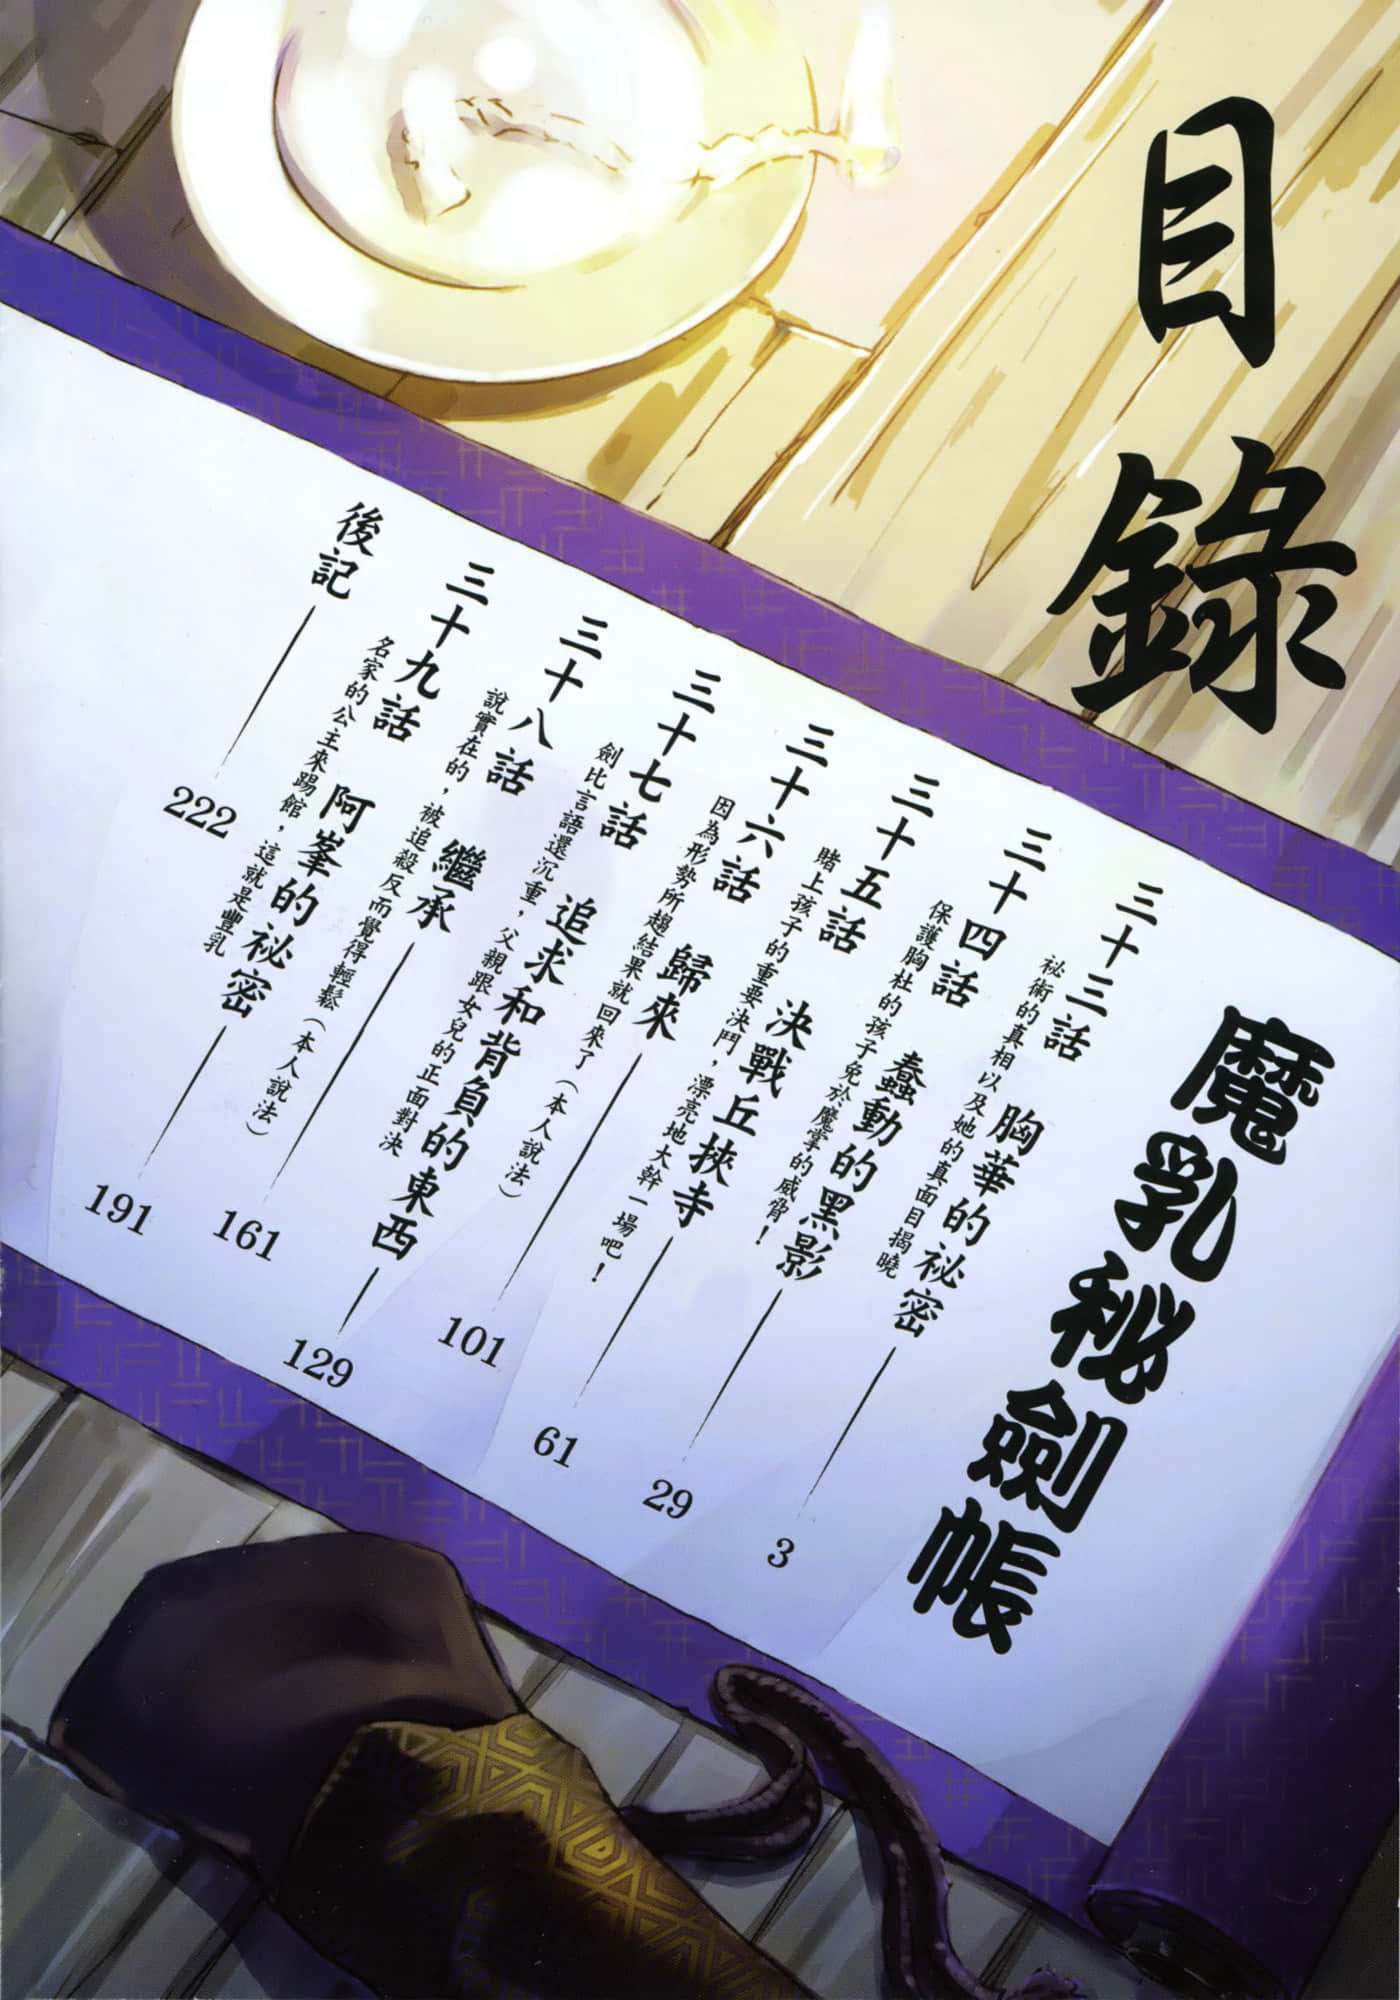 目錄
魔乳秘劍帳
三十三話 胸華的祕密 3
祕術的真相以及她的真面目揭曉
三十四話 蠢動的黑影 29
保護胸杜的孩子免於魔掌的威脅！
三十五話 決戰丘挾寺 61
賭上孩子的重要決鬥，漂亮地大幹一場吧！
三十六話 歸來 101
因為形勢所趨結果就回來了（本人說法）
三十七話 追求和背負的東西 129
劍比言語還沉重，父親跟女兒的正面對決
三十八話 繼承 161
說實在的，被追殺反而覺得輕鬆（本人說法）
三十九話 阿峯的祕密 191
名家的公主來踢館，這就是豐乳
後記 222